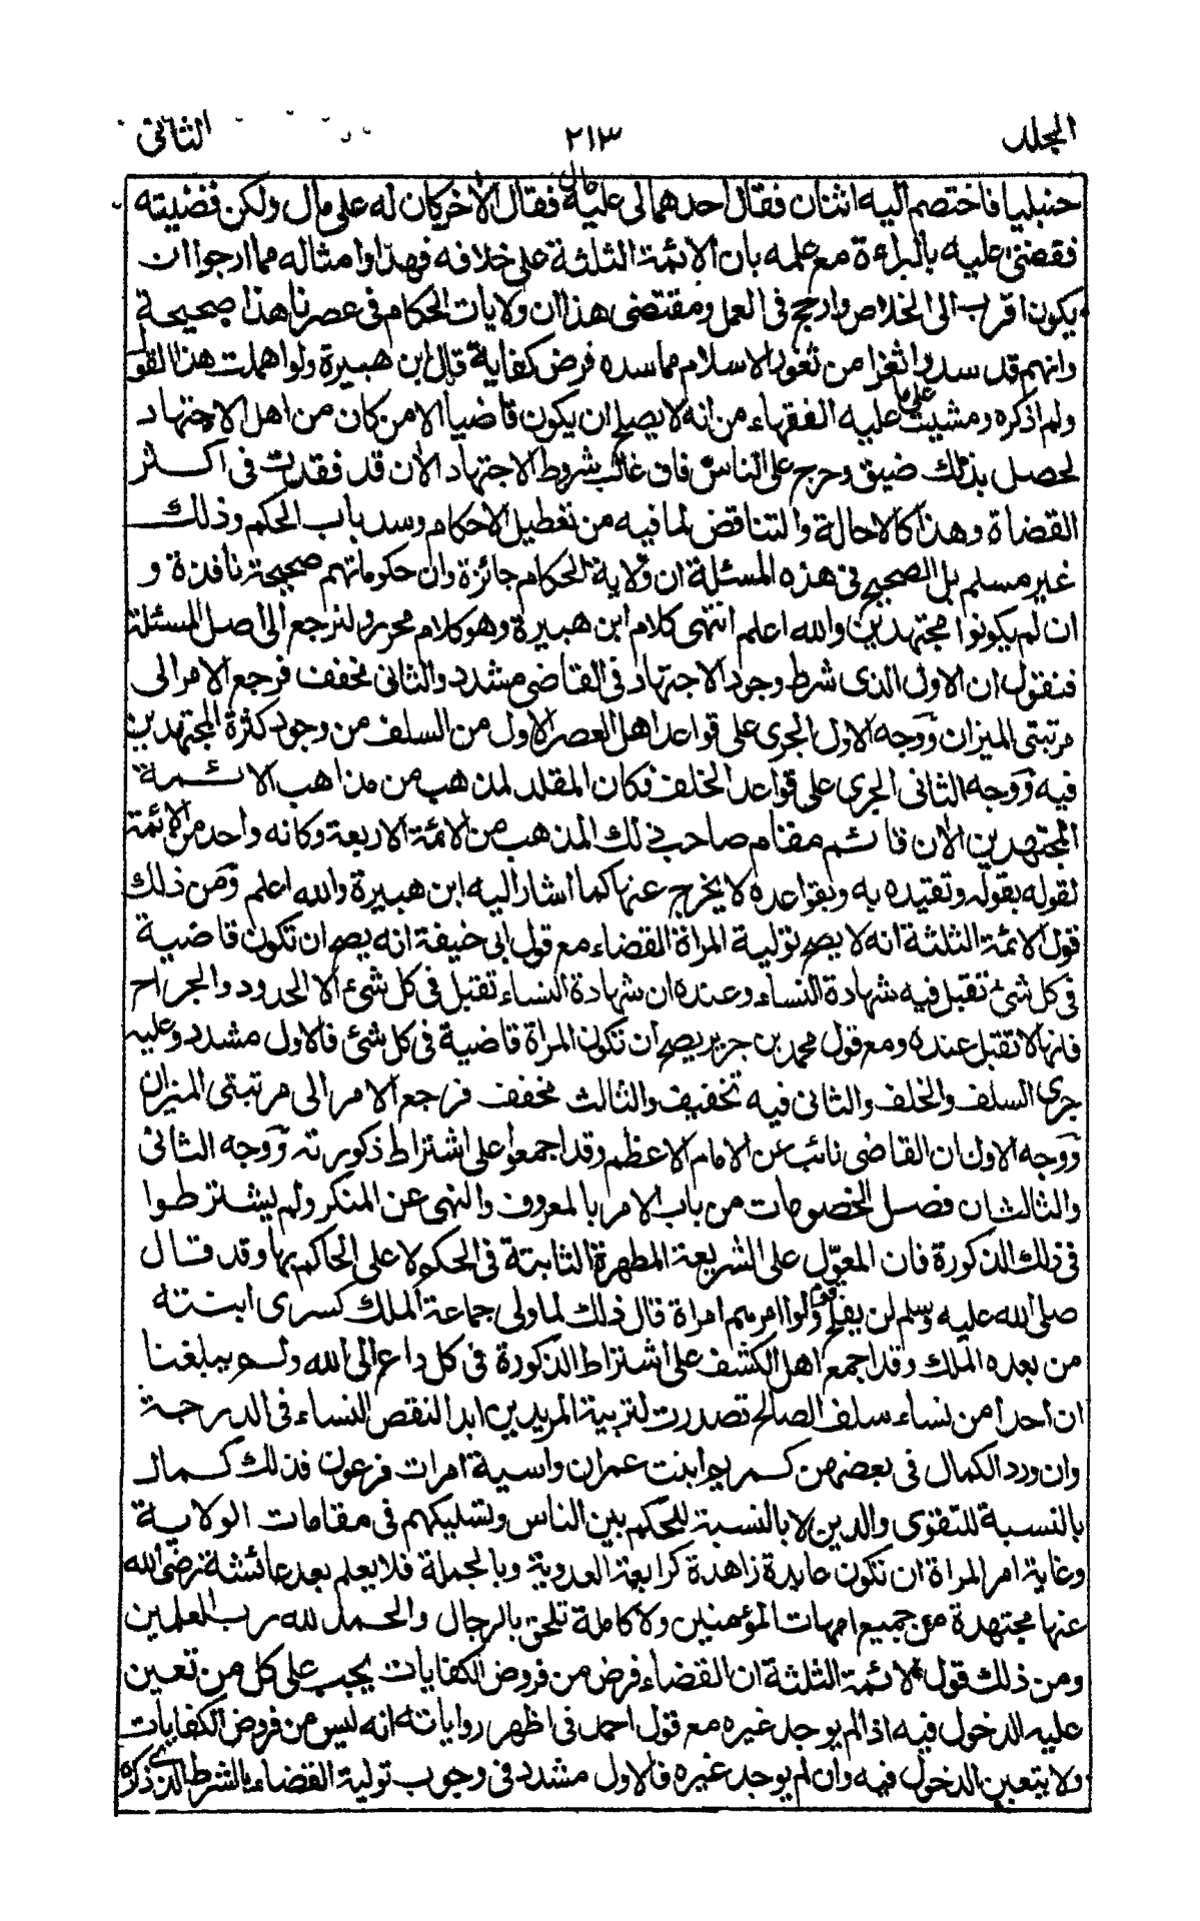 المجلد ٢١٣ الثانى
حنبليا فاختصم اليه اثنان فقال احدهما لى عليه مال فقال الآخر كان له على مال ولكن قضيته
فقضى عليه بالبراءة مع علمه بان الائمة الثلثة على خلافه فهذا وامثاله مما ارجوا ان
يكون اقرب الى الخلاص وارجح فى العمل ومقتضى هذا ان ولايات الحكام فى عصرنا هذا صحيحة
وانهم قد سدوا ثغرا من ثغور الاسلام مما سده فرض كفاية قال ابن هبيرة ولو اهملت هذا القول
ولم اذكره ومشيت على ما عليه الفقهاء من انه لا يصلح ان يكون قاضيا الا من كان من اهل الاجتهاد
لحصل بذلك ضيق وحرج على الناس فان غالب شروط الاجتهاد الآن قد فقدت فى اكثر
القضاة وهذا كالاحالة والتناقض لما فيه من تعطيل الاحكام وسد باب الحكم وذلك
غير مسلم بل الصحيح فى هذه المسئلة ان ولاية الحكام جائزة وان حكوماتهم صحيحة نافذة و
ان لم يكونوا مجتهدين والله اعلم انتهى كلام ابن هبيرة وهو كلام محرر ولنرجع الى اصل المسئلة
فنقول ان الاول الذى شرط وجود الاجتهاد فى القاضى مشدد والثانى مخفف فرجع الامر الى
مرتبتى الميزان ووجه الاول الجرى على قواعد اهل العصر الاول من السلف من وجود كثرة المجتهدين
فيه ووجه الثانى الجرى على قواعد الخلف فكان المقلد لمذهب من مذاهب الائمة
المجتهدين الآن قائم مقام صاحب ذلك المذهب من الائمة الاربعة وكانه واحد من الائمة
لقوله بقوله وتقيده به وبقواعده لا يخرج عنها كما اشار اليه ابن هبيرة والله اعلم ومن ذلك
قول الائمة الثلثة انه لا يصح تولية المراة القضاء مع قول ابى حنيفة انه يصح ان تكون قاضية
فى كل شئ تقبل فيه شهادة النساء وعنده ان شهادة النساء تقبل فى كل شئ الا الحدود والجراح
فانها لا تقبل عنده ومع قول محمد بن جرير يصح ان تكون المراة قاضية فى كل شئ فالاول مشدد وعليه
جرى السلف والخلف والثانى فيه تخفيف والثالث مخفف فرجع الامر الى مرتبتى الميزان
ووجه الاول ان القاضى نائب عن الامام الاعظم وقد اجمعوا على اشتراط ذكورته ووجه الثانى
والثالث ان فصل الخصومات من باب الامر بالمعروف والنهى عن المنكر ولم يشترطوا
فى ذلك الذكورة فان المعول على الشريعة المطهرة الثابتة فى الحكم لا على الحاكم بها وقد قال
صلى الله عليه وسلم لن يفلح قوم ولوا امرهم امراة قال ذلك لما ولى جماعة الملك كسرى ابنته
من بعده الملك وقد اجمع اهل الكشف على اشتراط الذكورة فى كل داع الى الله ولم يبلغنا
ان احدا من نساء سلف الصالح تصدرت لتربية المريدين ابدا لنقص النساء فى الدرجة
وان ورد الكمال فى بعضهن كمريم ابنت عمران واسية امرات فرعون فذلك كمال
بالنسبة للتقوى والدين لا بالنسبة للحكم بين الناس وتسليكهم فى مقامات الولاية
وغاية امر المراة ان تكون عابدة زاهدة كرابعة العدوية وبالجملة فلا يعلم بعد عائشة رضى الله
عنها مجتهدة من جميع امهات المؤمنين ولا كاملة تلحق بالرجال والحمد لله رب العلمين
ومن ذلك قول الائمة الثلثة ان القضاء فرض من فروض الكفايات يجب على كل من تعين
عليه الدخول فيه اذا لم يوجد غيره مع قول احمد فى اظهر رواياته انه ليس من فروض الكفايات
ولا يتعين الدخول فيه وان لم يوجد غيره فالاول مشدد فى وجوب تولية القضاء بالشرط الذى ذكره